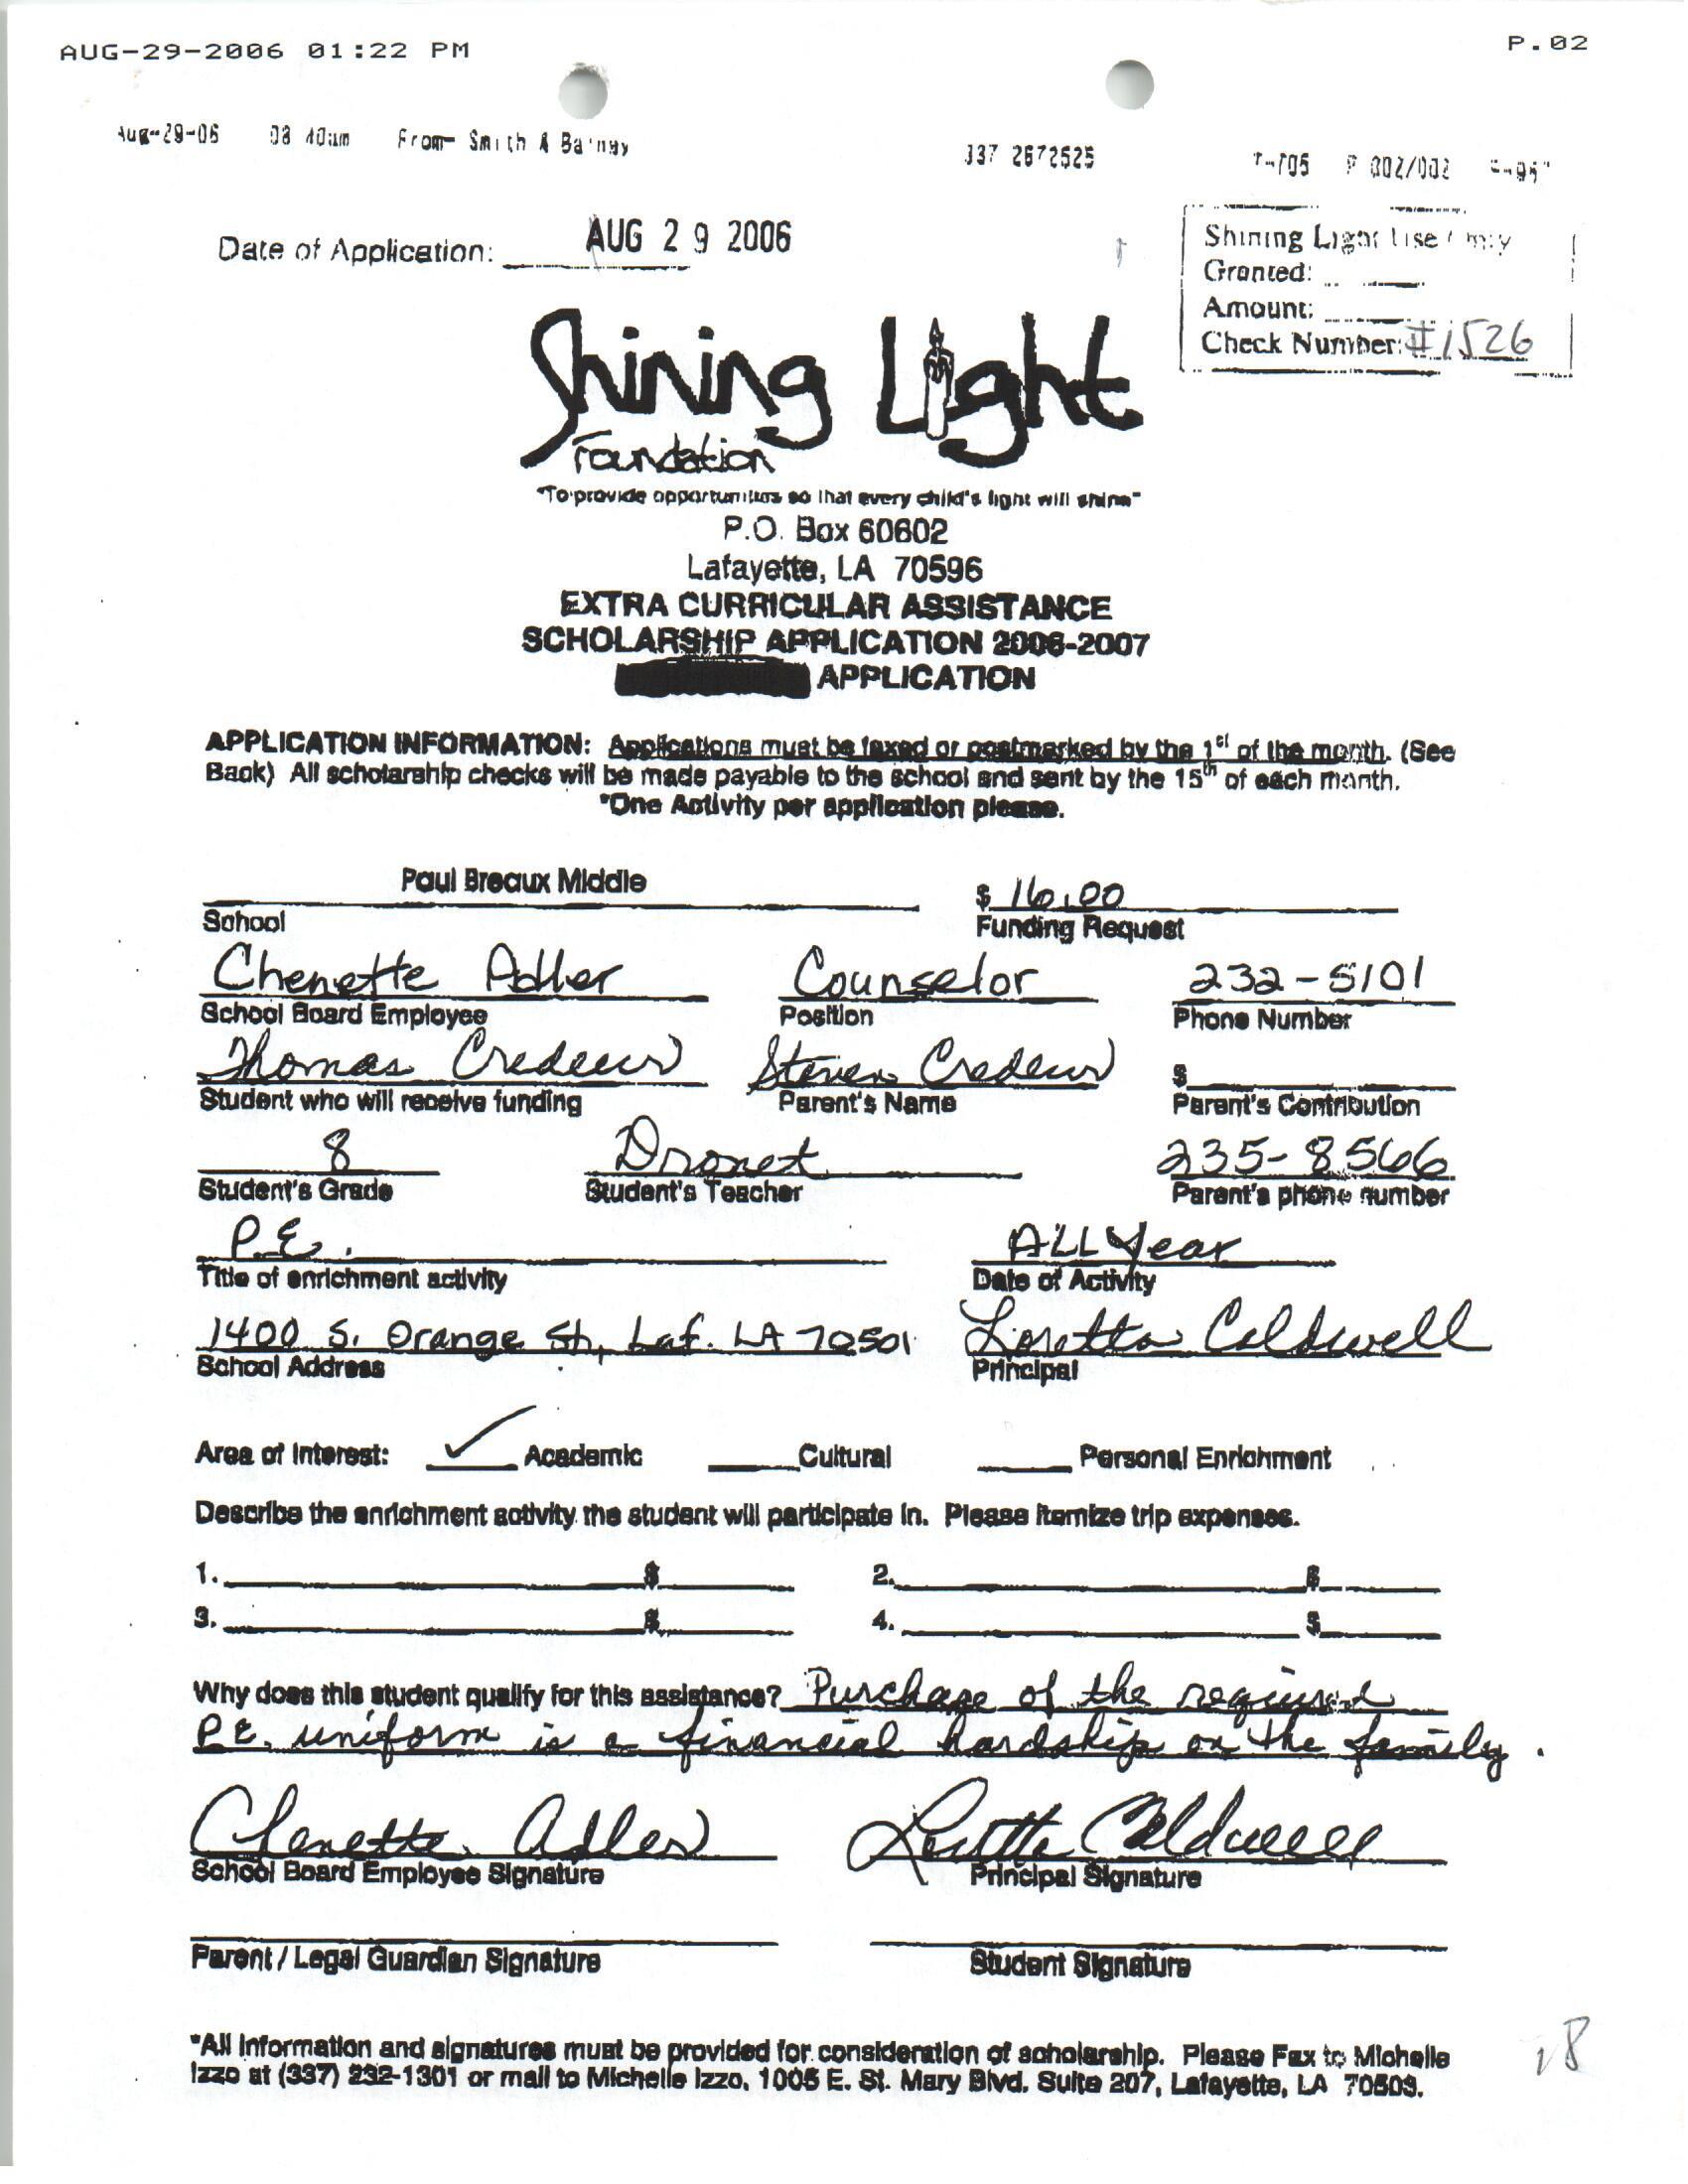 AUG-29-2006 01:22 PM P.02
Aug-29-06 08 40am From- Smith & Barney 337 2672525 T-705 P 002/002
Date of Application: AUG 29 2006
Shining Light Use Only
Granted:
Amount:
Check Number: #1526
Shining Light
Foundation
"To provide opportunities so that every child's light will shine"
P.O. Box 60602
Lafayette, LA 70596
EXTRA CURRICULAR ASSISTANCE
SCHOLARSHIP APPLICATION 2006-2007
APPLICATION
APPLICATION INFORMATION: Applications must be faxed or postmarked by the 1st of the month. (See
Back) All scholarship checks will be made payable to the school and sent by the 15th of each month.
*One Activity per application please.
Paul Breaux Middle $ 16.00
School Funding Request
Chenette Adler Counselor 232-5101
School Board Employee Position Phone Number
Thomas Credeur Steven Credeur $
Student who will receive funding Parent's Name Parent's Contribution
8 Dronet 235-8566
Student's Grade Student's Teacher Parent's phone number
P.E. ALL Year
Title of enrichment activity Date of Activity
1400 S. Orange St, Laf. LA 70501 Loretta Caldwell
School Address Principal
Area of Interest: ✓ Academic Cultural Personal Enrichment
Describe the enrichment activity the student will participate in. Please itemize trip expenses.
1. $ 2. $
3. $ 4. $
Why does this student qualify for this assistance? Purchase of the required
P.E. uniform is a financial hardship on the family.
Chenette Adler Loretta Caldwell
School Board Employee Signature Principal Signature
Parent / Legal Guardian Signature Student Signature
*All information and signatures must be provided for consideration of scholarship. Please Fax to Michelle
Izzo at (337) 232-1301 or mail to Michelle Izzo, 1005 E. St. Mary Blvd. Suite 207, Lafayette, LA 70503.